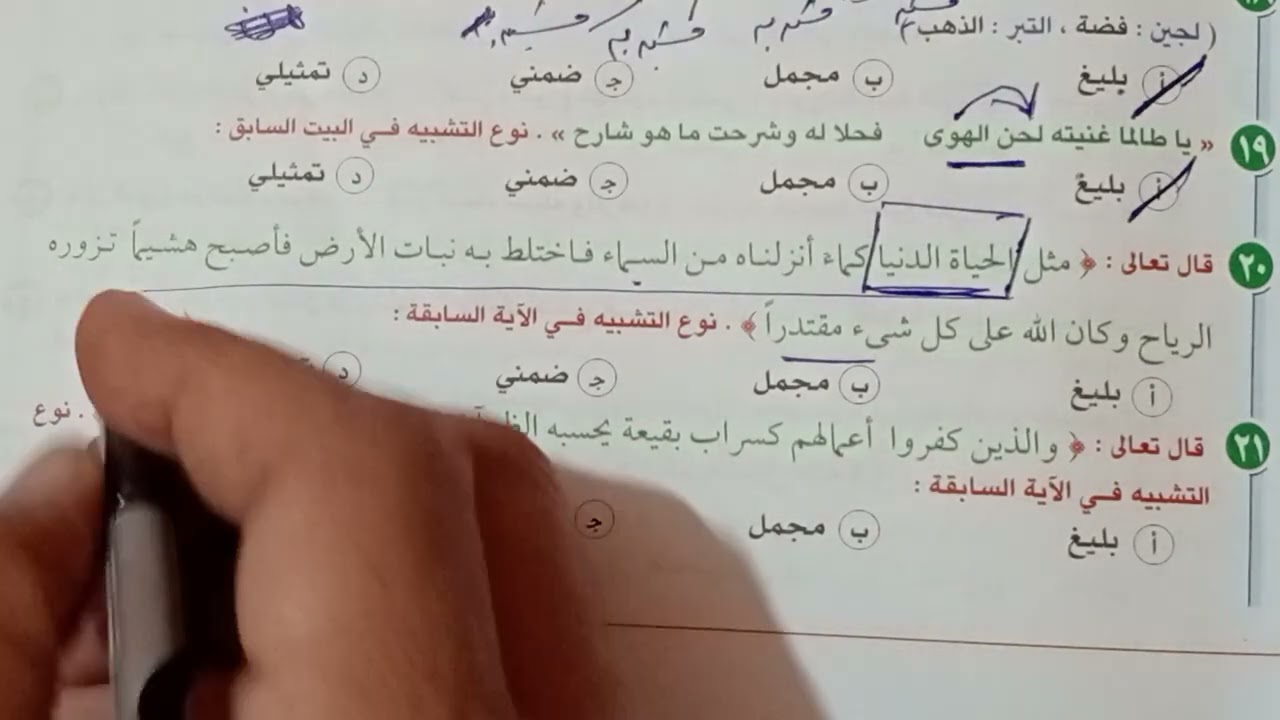 مشبه به مشبه به
( لجين : فضة ، التبر : الذهب )
أ بليغ ب مجمل جـ ضمني د تمثيلي
١٩ « يا طالما غنيته لحن الهوى فحلا له وشرحت ما هو شارح » . نوع التشبيه في البيت السابق :
أ بليغ ب مجمل جـ ضمني د تمثيلي
٢٠ قال تعالى : ﴿ مثل الحياة الدنيا كماء أنزلناه من السماء فاختلط به نبات الأرض فأصبح هشيماً تزوره
الرياح وكان الله على كل شيء مقتدراً ﴾ . نوع التشبيه في الآية السابقة :
أ بليغ ب مجمل جـ ضمني د
٢١ قال تعالى : ﴿ والذين كفروا أعمالهم كسراب بقيعة يحسبه . نوع
التشبيه في الآية السابقة :
أ بليغ ب مجمل جـ